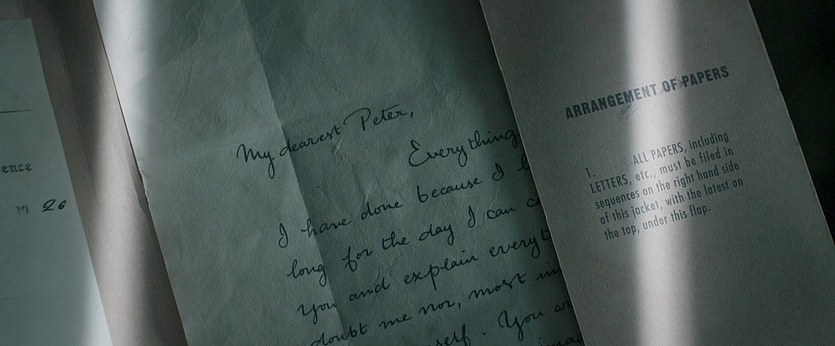 ence
19 26
My dearest Peter,
Everything
I have done because I
long for the day I can
You and explain everyt
doubt me nor, most
self. You
ARRANGEMENT OF PAPERS
1. ALL PAPERS, including
LETTERS, etc., must be filed in
sequences on the right hand side
of this jacket, with the latest on
the top, under this flap.